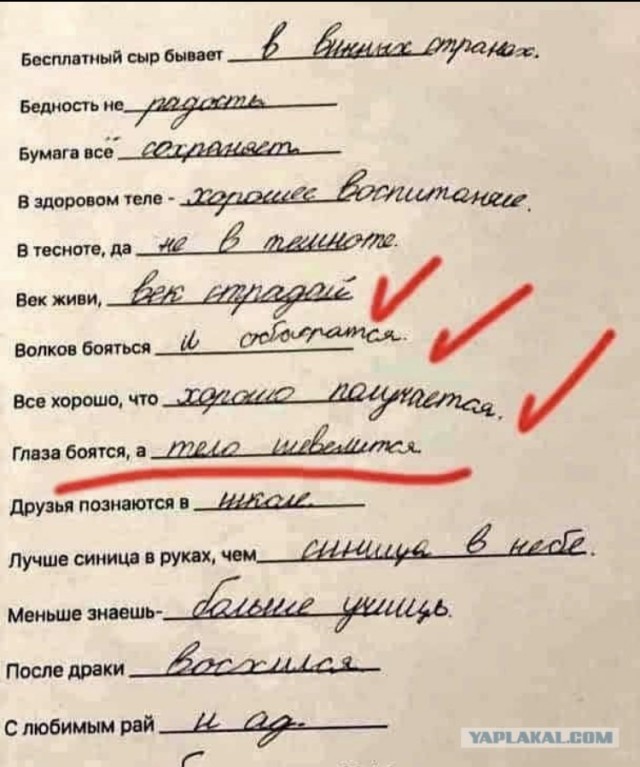 Бесплатный сыр бывает в винных странах.
Бедность не радость
Бумага всё сохраняет
В здоровом теле - хорошее воспитание.
В тесноте, да не в темноте.
Век живи, век страдай
Волков бояться и обосратся.
Все хорошо, что хорошо получается.
Глаза боятся, а тело шевелится.
Друзья познаются в школе.
Лучше синица в руках, чем синица в небе.
Меньше знаешь- больше учишь.
После драки
С любимым рай и ад.
YAPLAKAL.COM